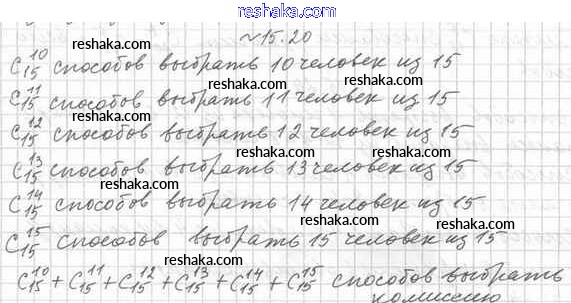 www.reshaka.com
№15.20
reshaka.com
C₁₅¹⁰ способов выбрать 10 человек из 15
reshaka.com reshaka.com
C₁₅¹¹ способов выбрать 11 человек из 15
reshaka.com
C₁₅¹² способов выбрать 12 человек из 15
reshaka.com reshaka.com
C₁₅¹³ способов выбрать 13 человек из 15
reshaka.com
C₁₅¹⁴ способов выбрать 14 человек из 15
reshaka.com reshaka.com
C₁₅¹⁵ способов выбрать 15 человек из 15
reshaka.com
C₁₅¹⁰ + C₁₅¹¹ + C₁₅¹² + C₁₅¹³ + C₁₅¹⁴ + C₁₅¹⁵ способов выбрать
комиссию